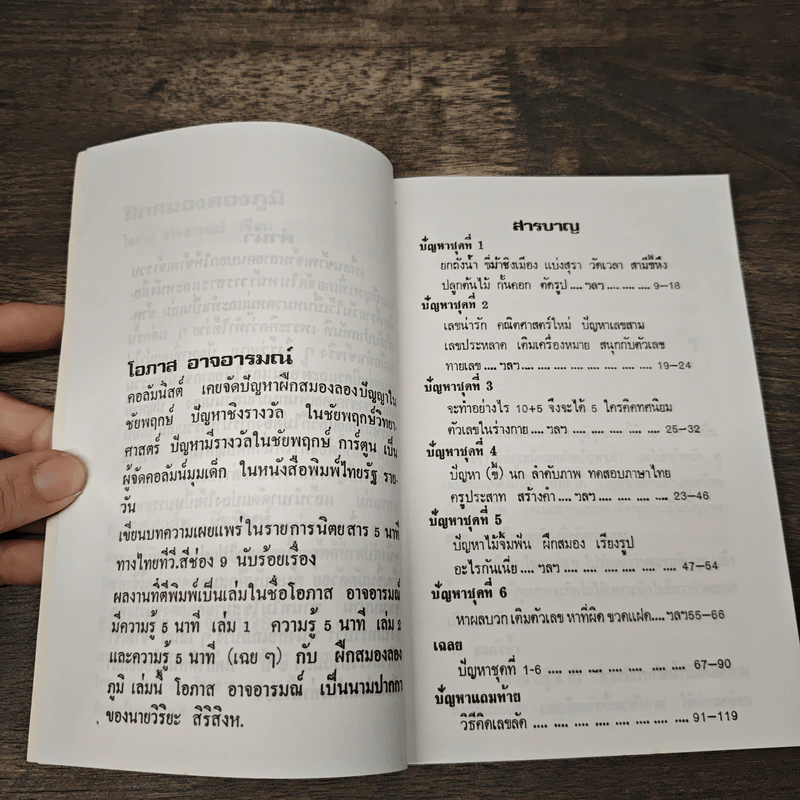 โอภาส อาจอารมณ์
คอลัมนิสต์ เคยจัดปัญหาฝึกสมองลองปัญญาใน
ชัยพฤกษ์ ปัญหาชิงรางวัล ในชัยพฤกษ์วิทยา-
ศาสตร์ ปัญหามีรางวัลในชัยพฤกษ์ การ์ตูน เป็น
ผู้จัดคอลัมน์มุมเด็ก ในหนังสือพิมพ์ไทยรัฐ ราย-
วัน
เขียนบทความเผยแพร่ในรายการนิตยสาร 5 นาที
ทางไทยทีวี.สีช่อง 9 นับร้อยเรื่อง
ผลงานที่ตีพิมพ์เป็นเล่มในชื่อโอภาส อาจอารมณ์
มีความรู้ 5 นาที เล่ม 1 ความรู้ 5 นาที เล่ม 2
และความรู้ 5 นาที (เฉย ๆ) กับ ฝึกสมองลอง
ภูมิ เล่มนี้ โอภาส อาจอารมณ์ เป็นนามปากกา
ของนายวิริยะ สิริสิงห.
สารบาญ
ปัญหาชุดที่ 1
ยกถังน้ำ ขี่ม้าชิงเมือง แบ่งสุรา วัดเวลา สามีขี้หึง
ปลูกต้นไม้ กั้นคอก ตัดรูป .... ฯลฯ .... .... .... 9–18
ปัญหาชุดที่ 2
เลขน่ารัก คณิตศาสตร์ใหม่ ปัญหาเลขสาม
เลขประหลาด เติมเครื่องหมาย สนุกกับตัวเลข
ทายเลข .... ฯลฯ.... .... .... .... .... .... .... 19–24
ปัญหาชุดที่ 3
จะทำอย่างไร 10+5 จึงจะได้ 5 ใครคิดทศนิยม
ตัวเลขในร่างกาย .... ฯลฯ .... .... .... .... 25–32
ปัญหาชุดที่ 4
ปัญหา (ขี้) นก ลำดับภาพ ทดสอบภาษาไทย
ครูประสาท สร้างคำ .... ฯลฯ .... .... .... .... 23–46
ปัญหาชุดที่ 5
ปัญหาไม้จิ้มฟัน ฝึกสมอง เรียงรูป
อะไรกันเนี่ย .... ฯลฯ .... .... .... .... .... 47–54
ปัญหาชุดที่ 6
หาผลบวก เติมตัวเลข หาที่ผิด ขวดแฝด.... ฯลฯ55–66
เฉลย
ปัญหาชุดที่ 1-6 .... .... .... .... .... .... .... 67–90
ปัญหาแถมท้าย
วิธีคิดเลขลัด .... .... .... .... .... .... .... .... 91–119